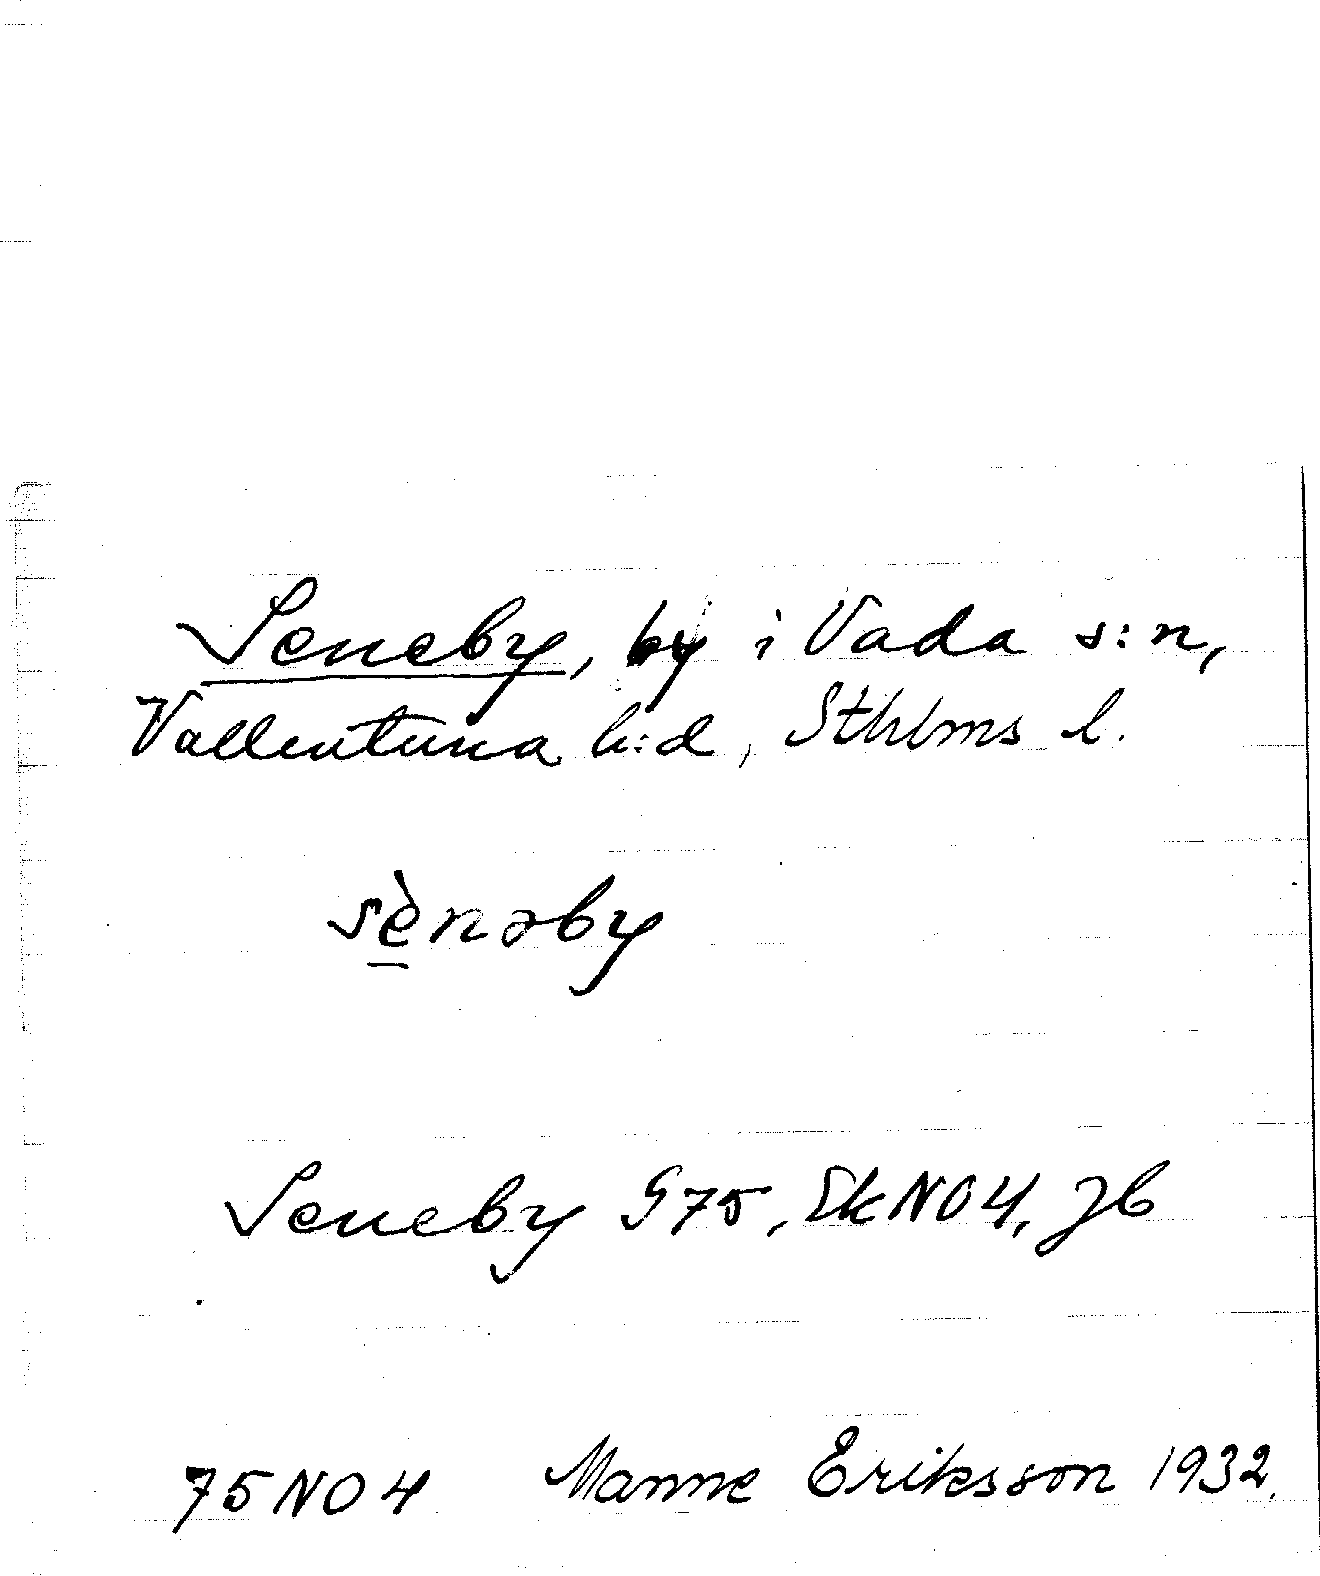 Seneby, by i Vada s:n,
Vallentuna h:d, Sthlms l.
sè̱nəby
Seneby G75, EkNO4, Jb
75NO4 Manne Eriksson 1932.